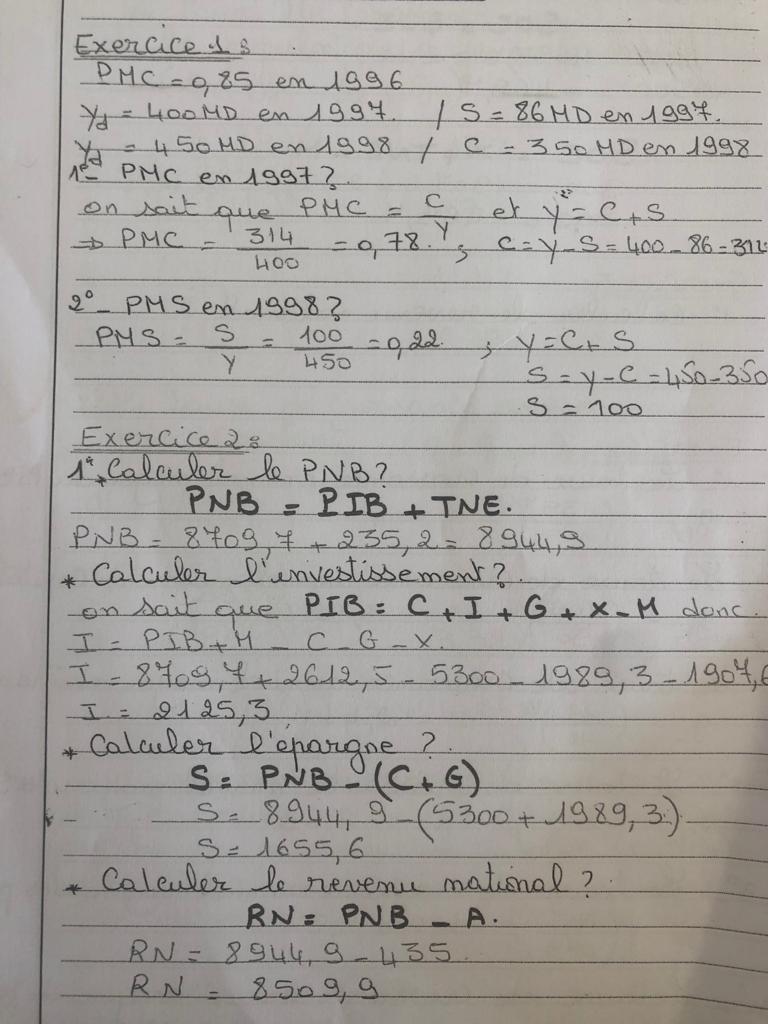 Exercice 1 :
PMC = 0,85 en 1996
Yd = 400 MD en 1997. / S = 86 MD en 1997.
Yd = 450 MD en 1998 / C = 350 MD en 1998
1°- PMC en 1997 ?
on sait que PMC = C/Y et Y = C + S
⇒ PMC = 314/400 = 0,78. ; C = Y - S = 400 - 86 = 314
2°- PMS en 1998 ?
PMS = S/Y = 100/450 = 0,22 ; Y = C + S
S = Y - C = 450 - 350
S = 100
Exercice 2 :
1°* Calculer le PNB ?
PNB = PIB + TNE.
PNB = 8709,7 + 235,2 = 8944,9
* Calculer l'investissement ?
on sait que PIB = C + I + G + X - M donc
I = PIB + M - C - G - X.
I = 8709,7 + 2612,5 - 5300 - 1989,3 - 1907,6
I = 2125,3
* Calculer l'épargne ?
S = PNB - (C + G)
S = 8944,9 - (5300 + 1989,3)
S = 1655,6
* Calculer le revenu national ?
RN = PNB - A.
RN = 8944,9 - 435
RN = 8509,9